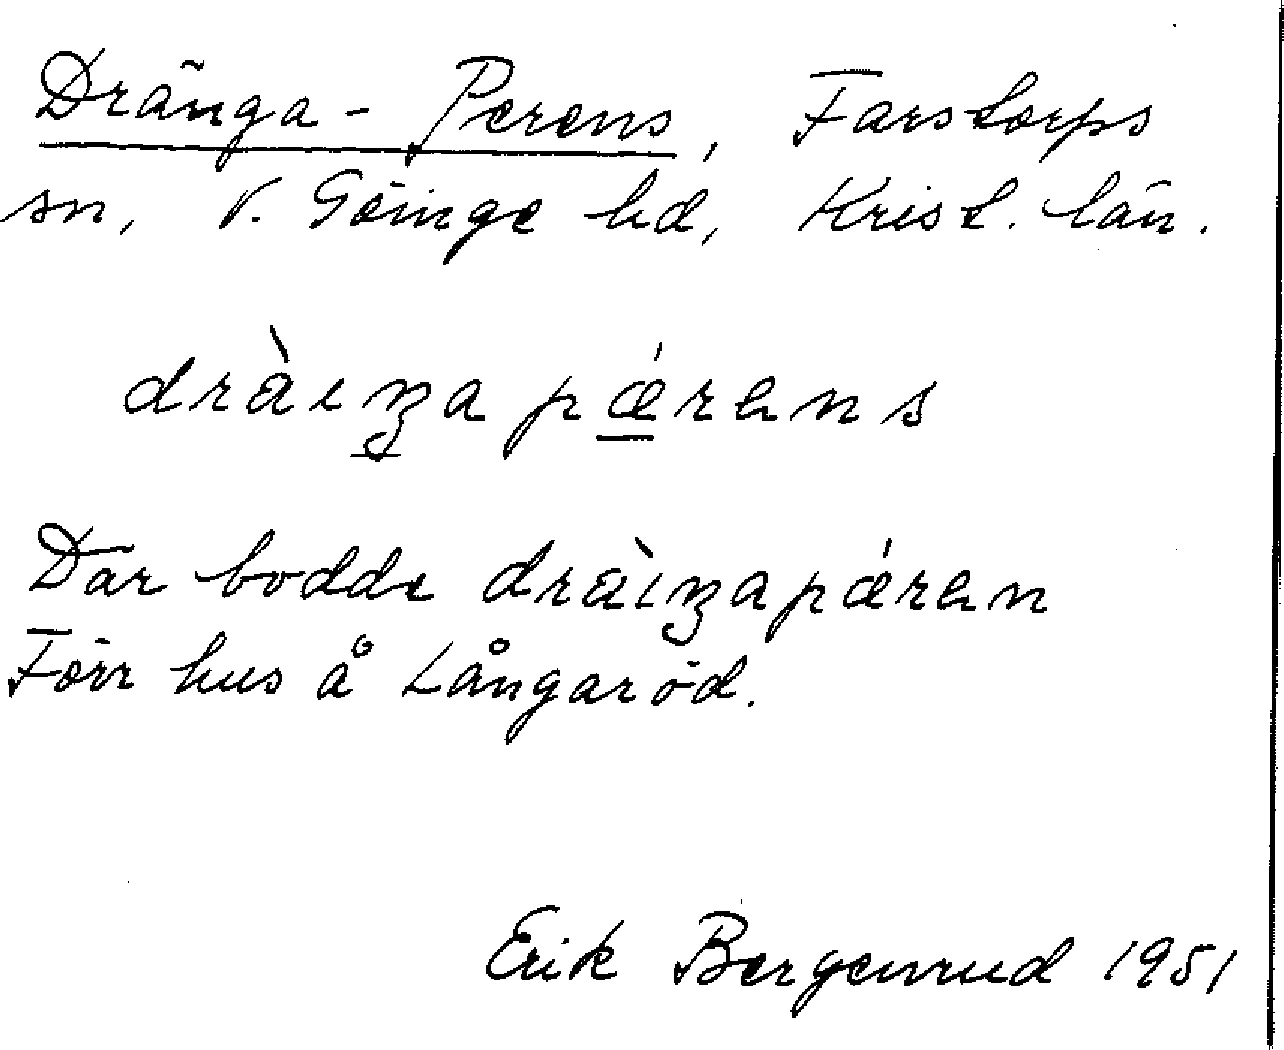 Dränga-Perens, Farstorps
sn, V. Göinge hd, Krist. län.
dràiŋa pǽrens
Där bodde dràiŋapǽren
Förr hus å Långaröd.
Erik Bergenrud 1951